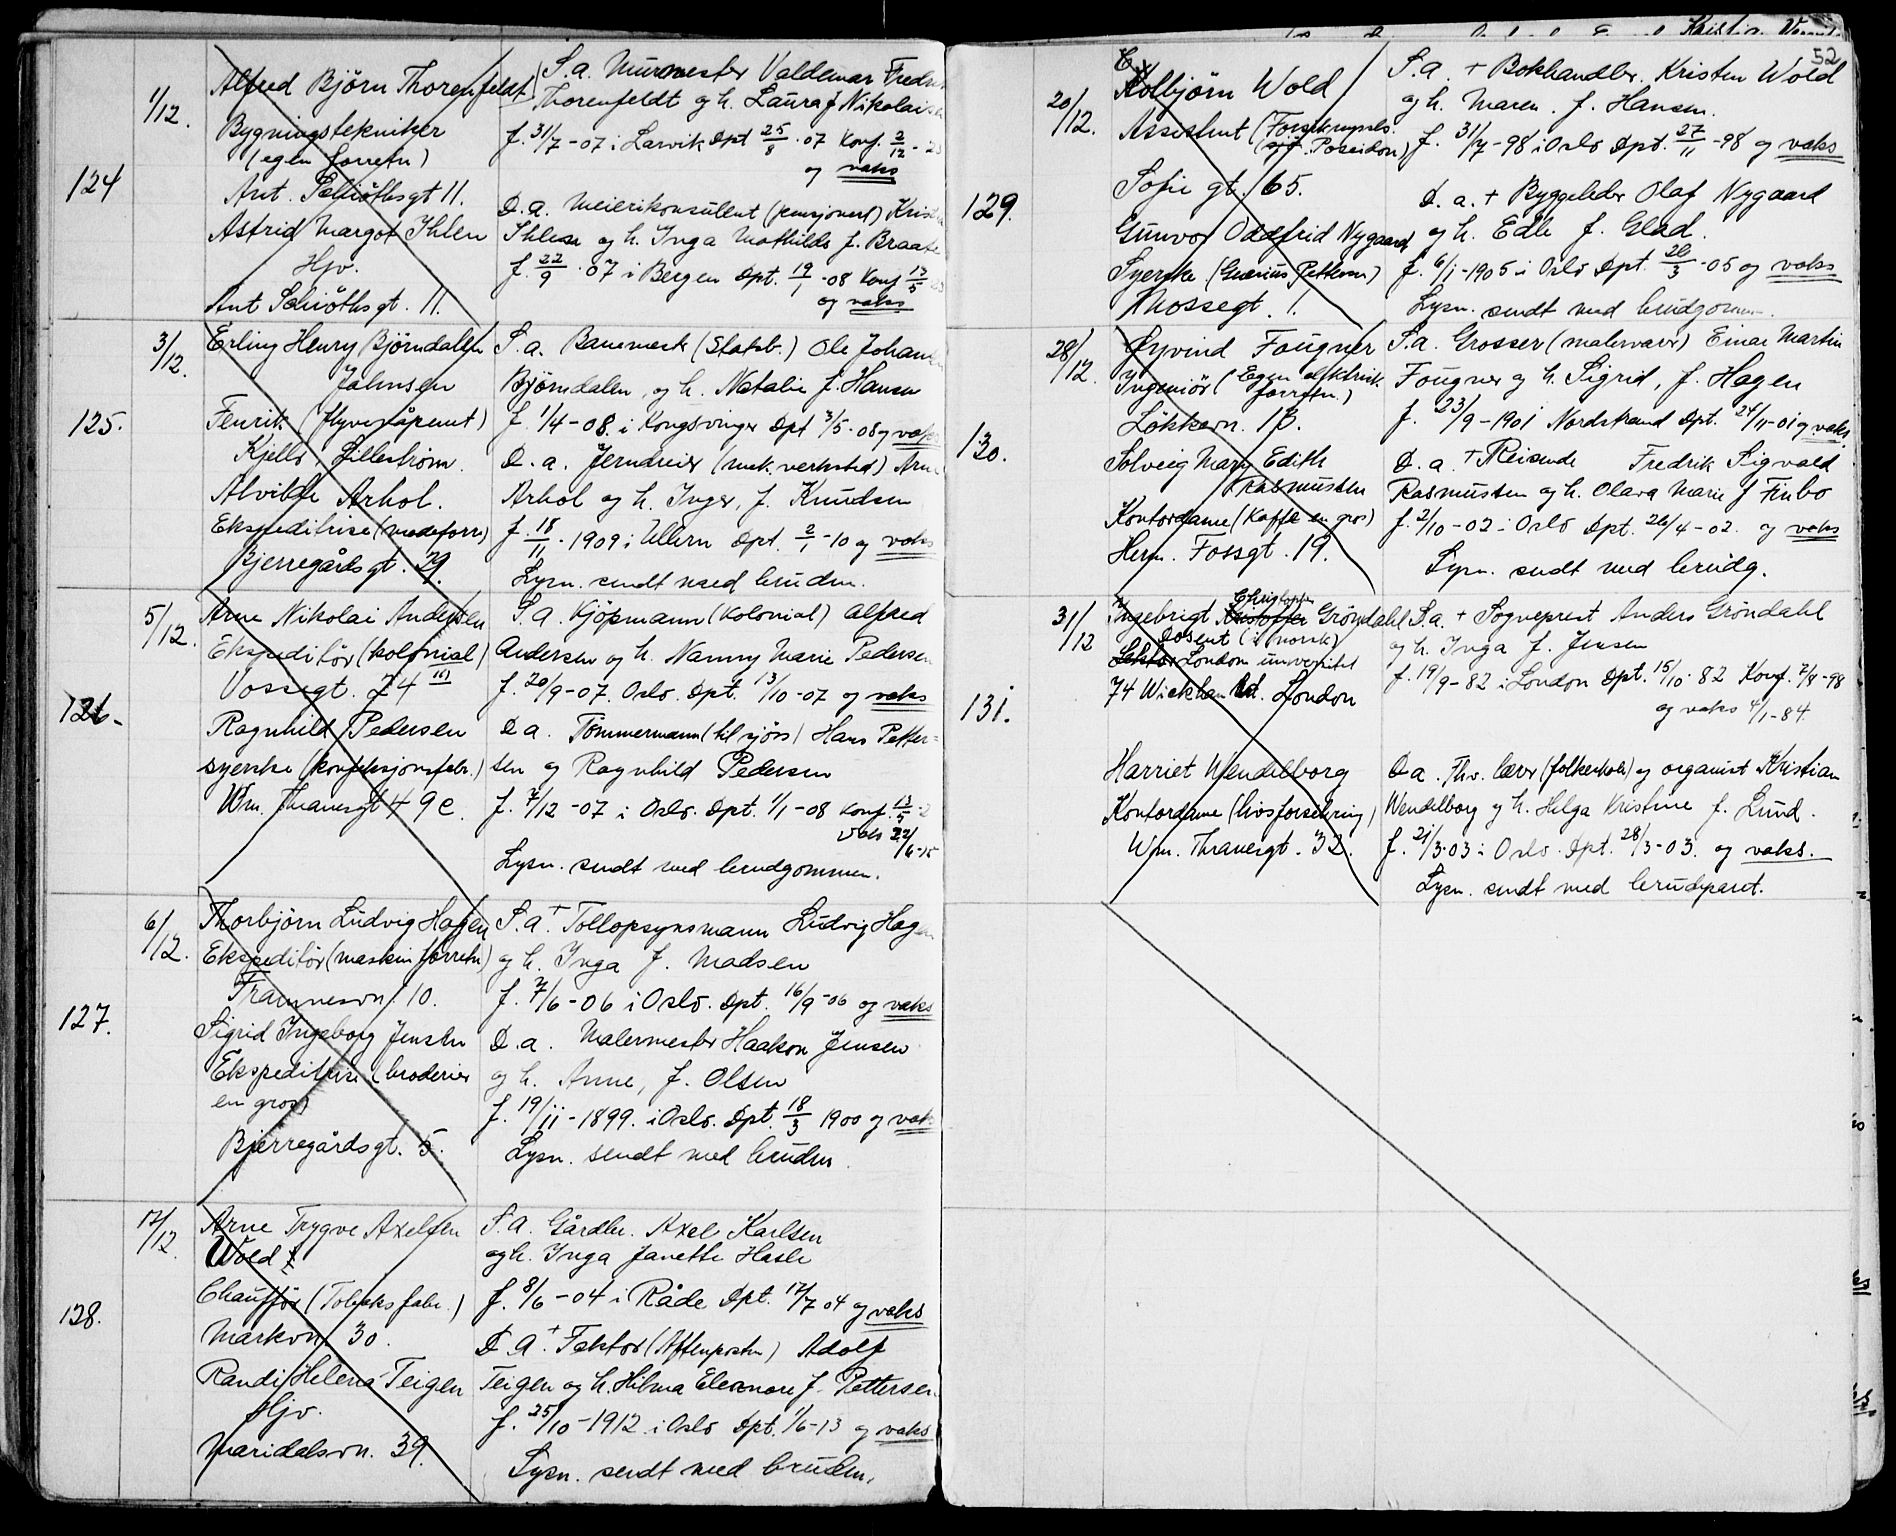 124
1/12.
Alfred Björn Thorenfeldt
Bygningstekniker
(egen forretn)
Ant. Schiöthsgt 11.
Astrid Margot Ihlen
Hjv.
Ant Schiöthsgt. 11.
S.a. Murmester Valdemar
Thorenfeldt og h. Laura f Nikolaisen
f. 31/7 - 07 i Larvik Dpt 25/8 . 07 Konf. 2/12 -
og vaks
D.a. Meierikonsulent (pensjonert)
Ihlen og h. Inga Mathilde f. Braate
f. 22/9 . 07 i Bergen Dpt. 19/1 - 08 Konf 13/5
og vaks
125.
3/12.
Erling Henry Björndalen
Johnsen
Fenrik (flyvevåpenet)
Kjeller, Lilleström.
Alvilde Arhol.
Ekspeditrise (modeforr)
Bjerregårdsgt. 29.
S.a. Banemest (Statsb.) Ole
Björndalen, og h. Natalie f. Hansen
f. 1/4 - 08. i Kongsvinger Dpt 3/5 - 08 og vaks
D.a. Jerndreier (mek. verksted)
Arhol og h. Inger, f. Knudsen
f. 18/11 . 1909 i Ullern Dpt. 2/1 - 10 og vaks
Lysn. sendt med bruden.
126.
5/12.
Arne Nikolai Andersen
Ekspeditör (kolonial)
Vossegt. 24 III
Ragnhild Pedersen
syerske (konfeksjonsfabr.)
Wm. Thranesgt 49 c.
S.a. Kjöpmann (kolonial) Alfred
Andersen og h. Nanny Marie Pedersen
f. 20/9 - 07. Oslo. Dpt. 13/10 - 07 og vaks
D a. Tömmermann (til sjös) Hans Petter=
sen og Ragnhild Pedersen
f. 7/12 - 07 i Oslo. Dpt. 1/1 - 08 Konf. 13/5
Vaks 22/6 - 15
Lysn. sendt med brudgommen.
127.
6/12.
Thorbjörn Ludvig Hagen
Ekspeditör (maskin forretn)
Framnesvn. 10.
Sigrid Ingeborg Jensen
Ekspeditrise (broderier
en gros)
Bjerregårdsgt. 5.
S.a + Tollopsynsmann Ludvig Hagen
og h. Inga f. Madsen
f. 7/6 - 06 i Oslo. Dpt. 16/9 - 06 og vaks
D.a. Malermester Haakon Jensen
og h. Anne, f. Olsen
f. 19/11 - 1899. i Oslo. Dpt. 18/3 1900 og vaks
Lysn. sendt med bruden.
128.
17/12.
Arne Trygve Axelsen
Wold
Chaufför (Tobaksfabr.)
Markvn 30.
Randi Helena Teigen
Hjv.
Maridalsvn. 39.
S.a. Gårdbr. Axel Karlsen
og h. Inga Janette Hasle
f. 8/6 - 04 i Råde Dpt. 17/7 04 og vaks
D.a + Faktor (Aftenposten) Adolf
Teigen og h. Hilma Eleonore f. Pettersen
f. 25/10 - 1912 i Oslo Dpt. 1/6 - 13 og vaks
Lysn. sendt med bruden.
52
129.
20/12.
Kolbjörn Wold
Assistent (Forsikringsels.
Poseidon)
Sofie gt. 65.
Gunvor Oddfrid Nygaard
Syerske (Pettersen)
Mossegt. 1.
S.a. + Bokhandler. Kristen Wold
og h. Maren. f. Hansen.
f. 31/7 - 98 i Oslo Dpt. 27/11 - 98 og vaks
D.a. + Byggeleder Olaf Nygaard
og h. Edle f. Glad.
f. 6/1 - 1905 i Oslo Dpt. 26/3 - 05 og vaks
Lysn. sendt med brudgommen.
130.
28/12.
Øyvind Fougner
Ingeniör (Egen elektrisk
forretn.)
Lökkevn. 13.
Solveig Mary Edith
Rasmussen
Kontordame (Kaffe en gros)
Herm. Fossgt. 19.
S.a. Grosser (malervarer) Einar Martin
Fougner og h. Sigrid, f. Hagen
f. 23/9 - 1901 Nordstrand Dpt. 24/11 - 01 og vaks
D.a. + Reisende Fredrik Sigvald
Rasmussen og h. Olava Marie f Finbo
f. 2/10 - 02 i Oslo Dpt. 26/4 - 02. og vaks
Lysn. sendt med brudg.
131.
31/12
Christopher
Ingebrigt Gröndahl
Dosent (i norsk)
Lektor London universitet
74 Wickham Rd. London
Harriet Wendelborg
Kontordame (livsforsikring)
Wm. Thranesgt. 32.
S.a. + Sogneprest Anders Gröndahl
og h. Inga f. Jensen
f. 19/9 - 82 i London Dpt. 15/10 . 82 Konf. 2/4 - 98
og vaks 4/1 - 84.
D a. Fhv. lærer (folkeskole) og organist Kristian
Wendelborg og h. Helga Kristine f. Lund.
f. 21/3 . 03 i Oslo. Dpt. 28/3 - 03. og vaks.
Lysn. sendt med brudeparet.